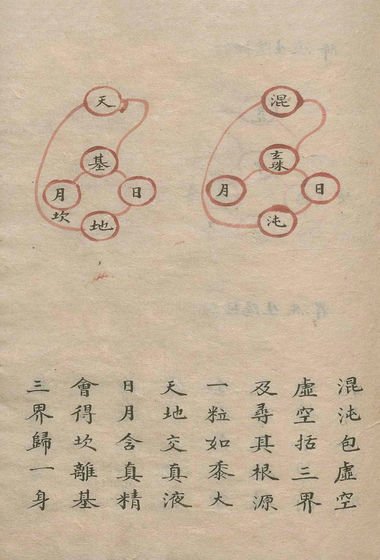 混
玄珠
月
日
沌
天
基
月
坎
日
地
混沌包虛空
虛空括三界
及尋其根源
一粒如黍大
天地交真液
日月含真精
會得坎離基
三界歸一身